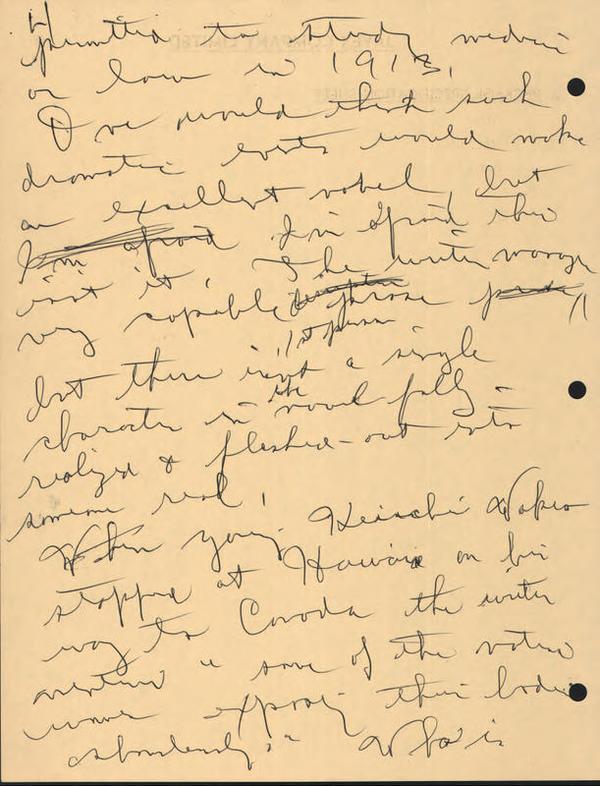 permitted to study medicine
or law in 1913.
I've would think such
dramatic events would make
an excellent novel, but
I'm afraid I'm afraid this
isn't it. The writer
very capable prose
1st person
but there isn't a single
character in the novel fully
realized & fleshed-out into
someone real.
When young Keiichi
stopped at Hawaii on his
way to Canada the writer
some of the native
women exposing their bodies